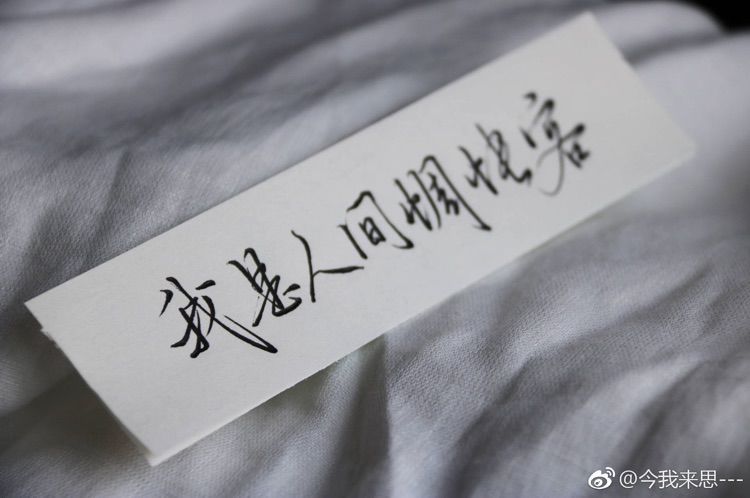 我是人间惆怅客
@今我来思---